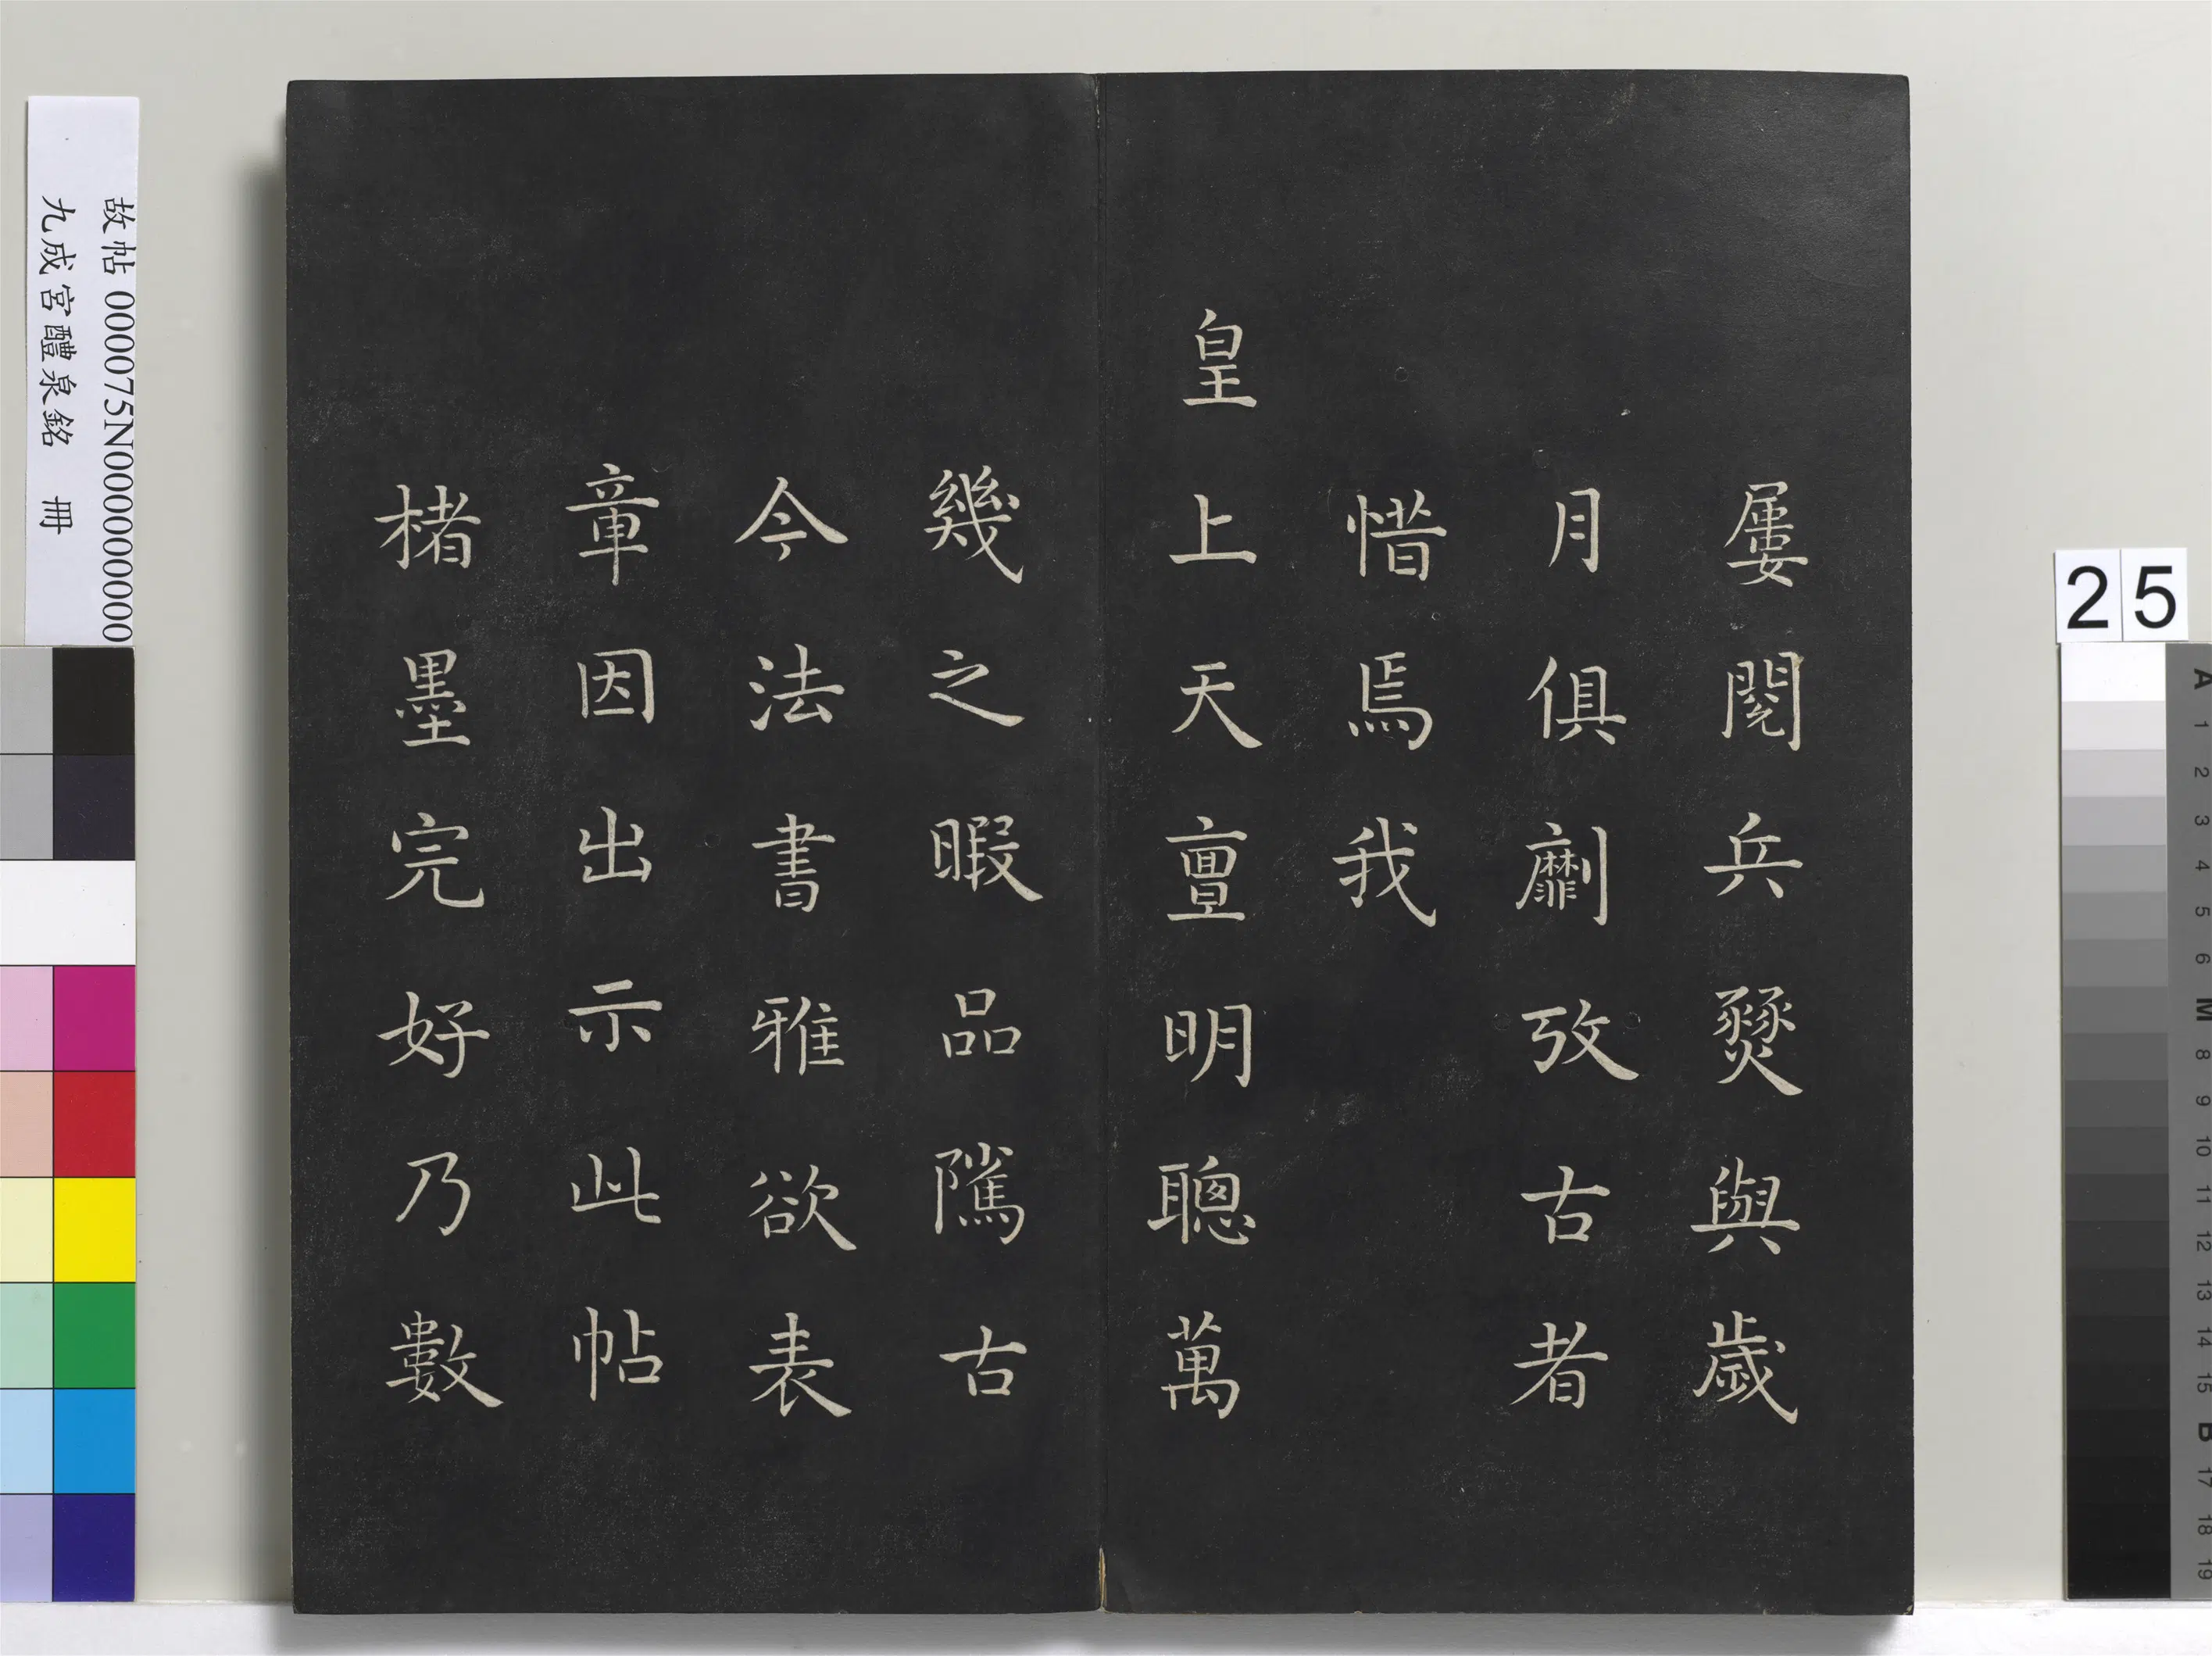 屢閱兵燹與歲
月俱劘攷古者
惜焉我
皇上天亶明聰萬
幾之暇品隲古
今法書雅欲表
章因出示此帖
楮墨完好乃數
故帖 000075N000000000
九成宮醴泉銘 冊
25
A
1
2
3
4
5
6
M
8
9
10
11
12
13
14
15
B
17
18
19